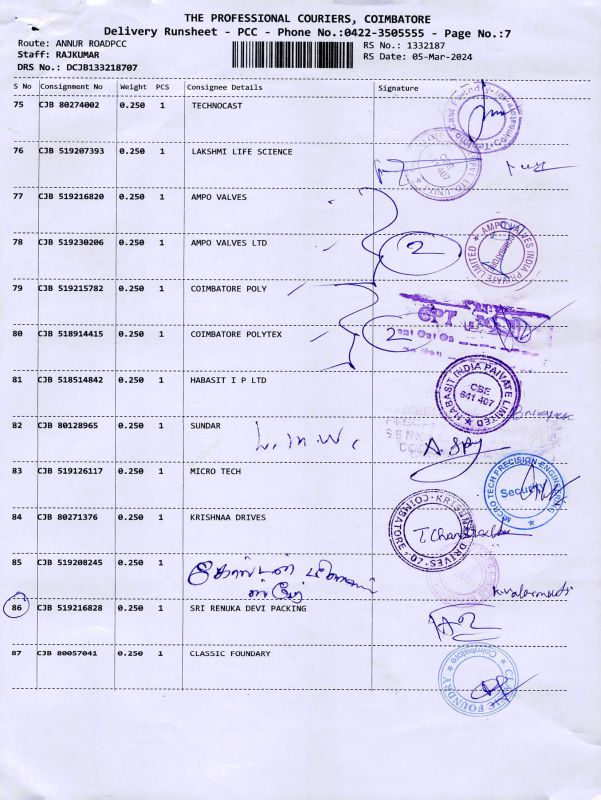 THE PROFESSIONAL COURIERS, COIMBATORE
Delivery Runsheet - PCC - Phone No.:0422-3505555 - Page No.:7
Route: ANNUR ROADPCC RS No.: 1332187
Staff: RAJKUMAR RS Date: 05-Mar-2024
DRS No.: DCJB133218707
S No Consignment No Weight PCS Consignee Details Signature
75 CJB 80274002 0.250 1 TECHNOCAST
76 CJB 519207393 0.250 1 LAKSHMI LIFE SCIENCE
77 CJB 519216820 0.250 1 AMPO VALVES
78 CJB 519230206 0.250 1 AMPO VALVES LTD 2 AMPO VALVES INDIA PRIVATE LIMITED COIMBATORE
79 CJB 519215782 0.250 1 COIMBATORE POLY
80 CJB 518914415 0.250 1 COIMBATORE POLYTEX 2
81 CJB 518514842 0.250 1 HABASIT I P LTD HABASIT INDIA PRIVATE LIMITED CBE 641 407
82 CJB 80128965 0.250 1 SUNDAR
83 CJB 519126117 0.250 1 MICRO TECH MICRO TECH PRECISION ENGINEERING Security
84 CJB 80271376 0.250 1 KRISHNAA DRIVES KRISHNAA DRIVES COIMBATORE
85 CJB 519208245 0.250 1
86 CJB 519216828 0.250 1 SRI RENUKA DEVI PACKING
87 CJB 80057041 0.250 1 CLASSIC FOUNDRY FOUNDRY Coimbatore